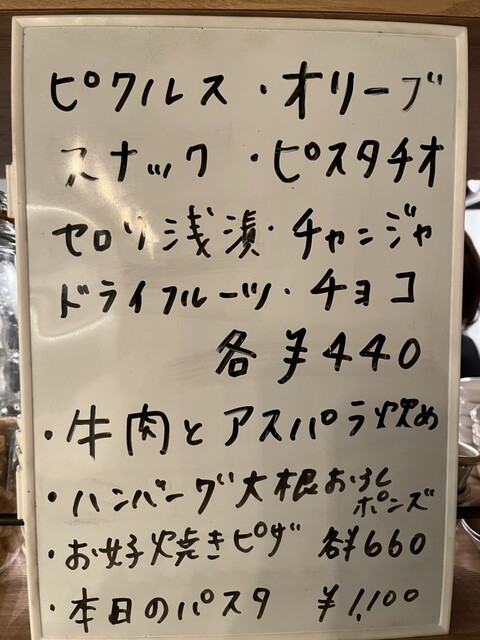 ピクルス・オリーブ
スナック・ピスタチオ
セロリ浅漬・チャンジャ
ドライフルーツ・チョコ
各¥440
・牛肉とアスパラ炒め
・ハンバーグ大根おろしポンズ
・お好み焼きピザ 各¥660
・本日のパスタ ¥1,100